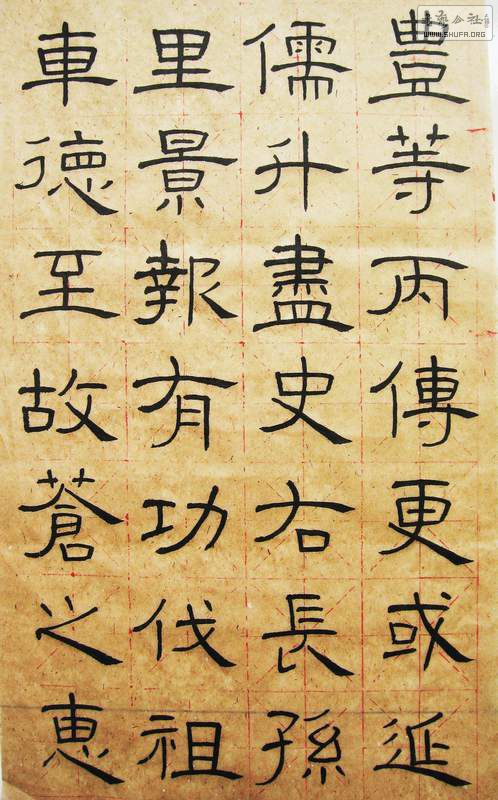 豊䓁丙傳更或延
儒升盡史右長孫
里景報有功伐祖
車德至故蒼之恵
WWW.SHUFA.ORG